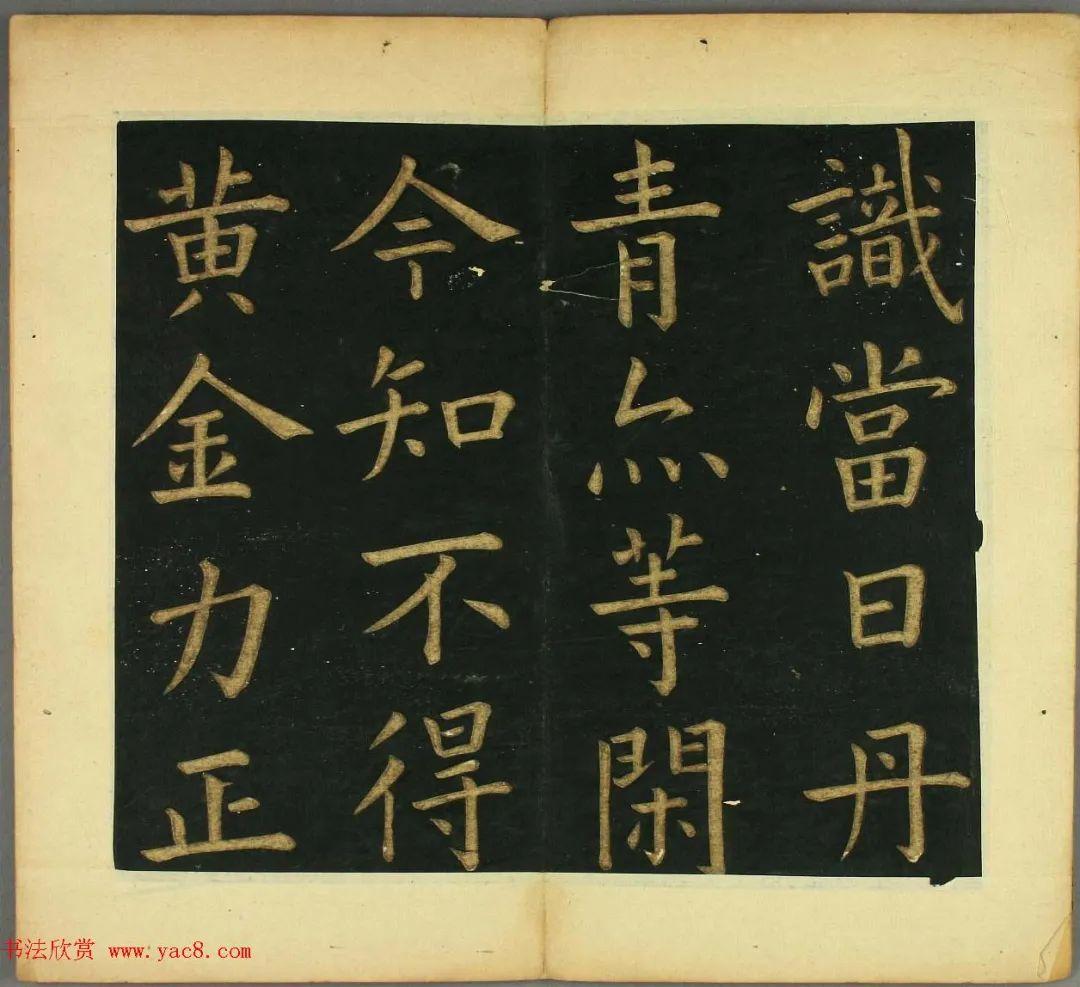 識當日丹
青亦等閑
今知不得
黄金力正
书法欣赏 www.yac8.com